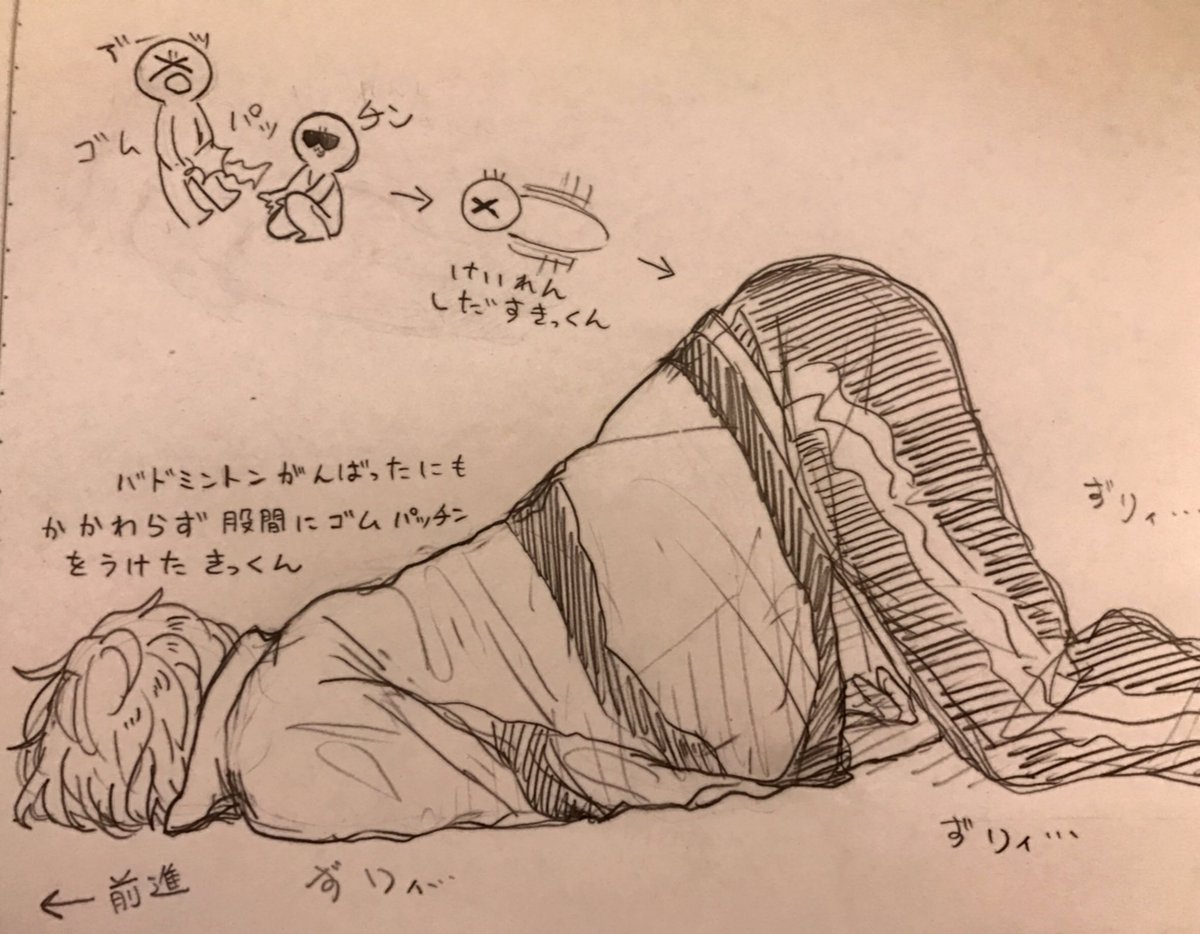 アーッ
ゴム
パッ
チン
けいれん
しだすきっくん
バドミントンがんばったにも
かかわらず股間にゴムパッチン
をうけたきっくん
ずりィ…
ずりィ…
ずりィ…
←前進